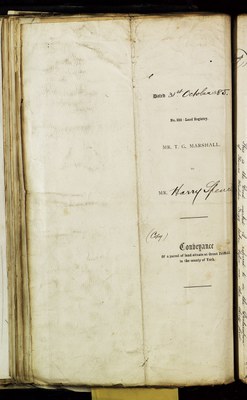 Dated 31st October 185
No. 253 - Land Registry.
MR. T. G. MARSHALL,
TO
MR. Harry
(Copy)
Conveyance
Of a parcel of land situate at Great
in the county of York.